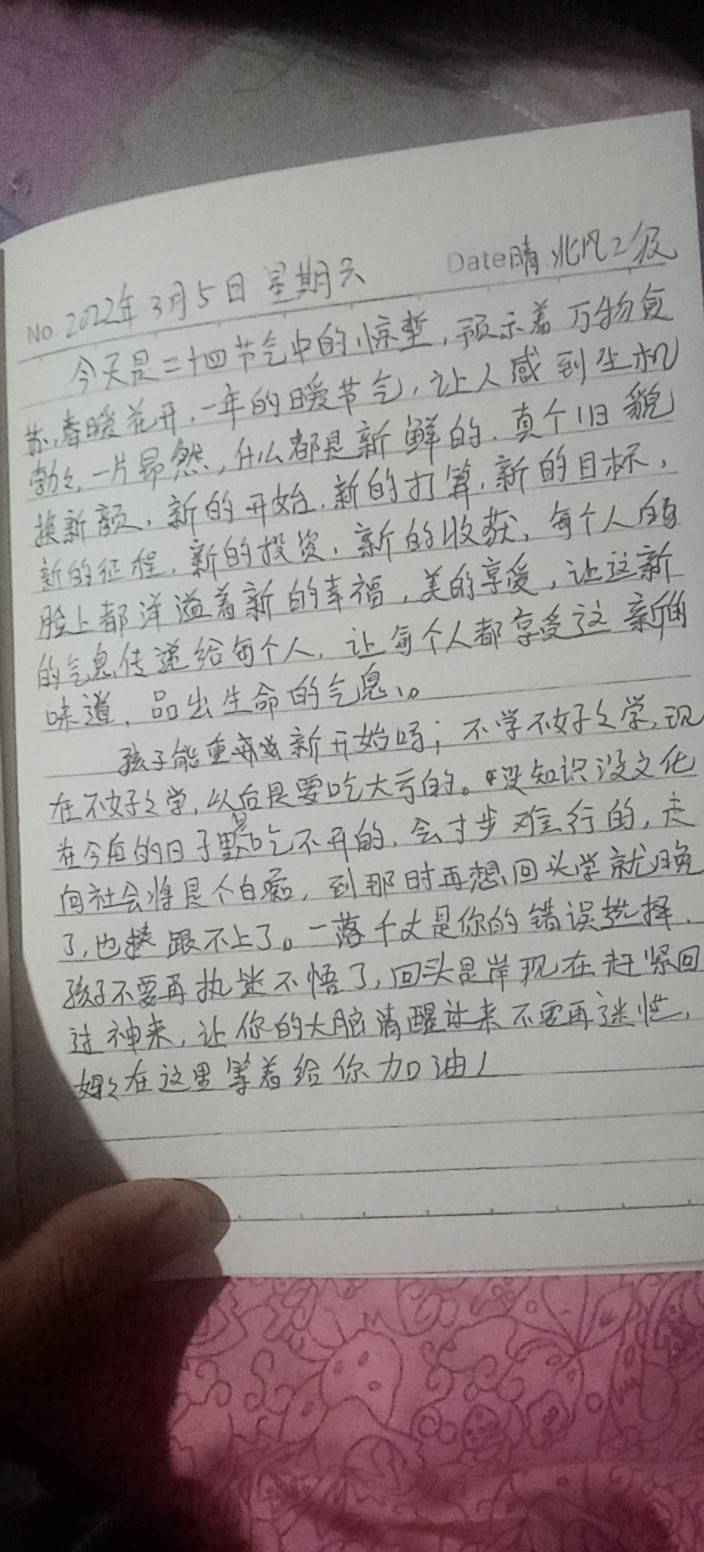 No. 2022年3月5日 星期六 Date 晴 北风2级
今天是二十四节气中的惊蛰,预示着万物复
苏,春暖花开,一年的暖节气,让人感到生机
勃々,一片昂然,什么都是新鲜的.真个旧貌
换新颜,新的开始,新的打算,新的目标,
新的征程,新的投资,新的收获,每个人的
脸上都洋溢着新的幸福,美的享受,让这新
的气息传递给每个人,让每个人都享受这新的
味道,品出生命的气息。
孩子能重新开始吗;不学不好々学,现
在不好々学,以后是要吃大亏的。没知识没文化
在今后的日子里是吃不开的,会寸步难行的,走
向社会将是个白痴,到那时再想回头学就晚
了,也跟不上了。一落千丈是你的错误选择,
孩子不要再执迷不悟了,回头是岸现在赶紧回
过神来,让你的大脑清醒过来不要再迷茫,
在这里等着给你加油!